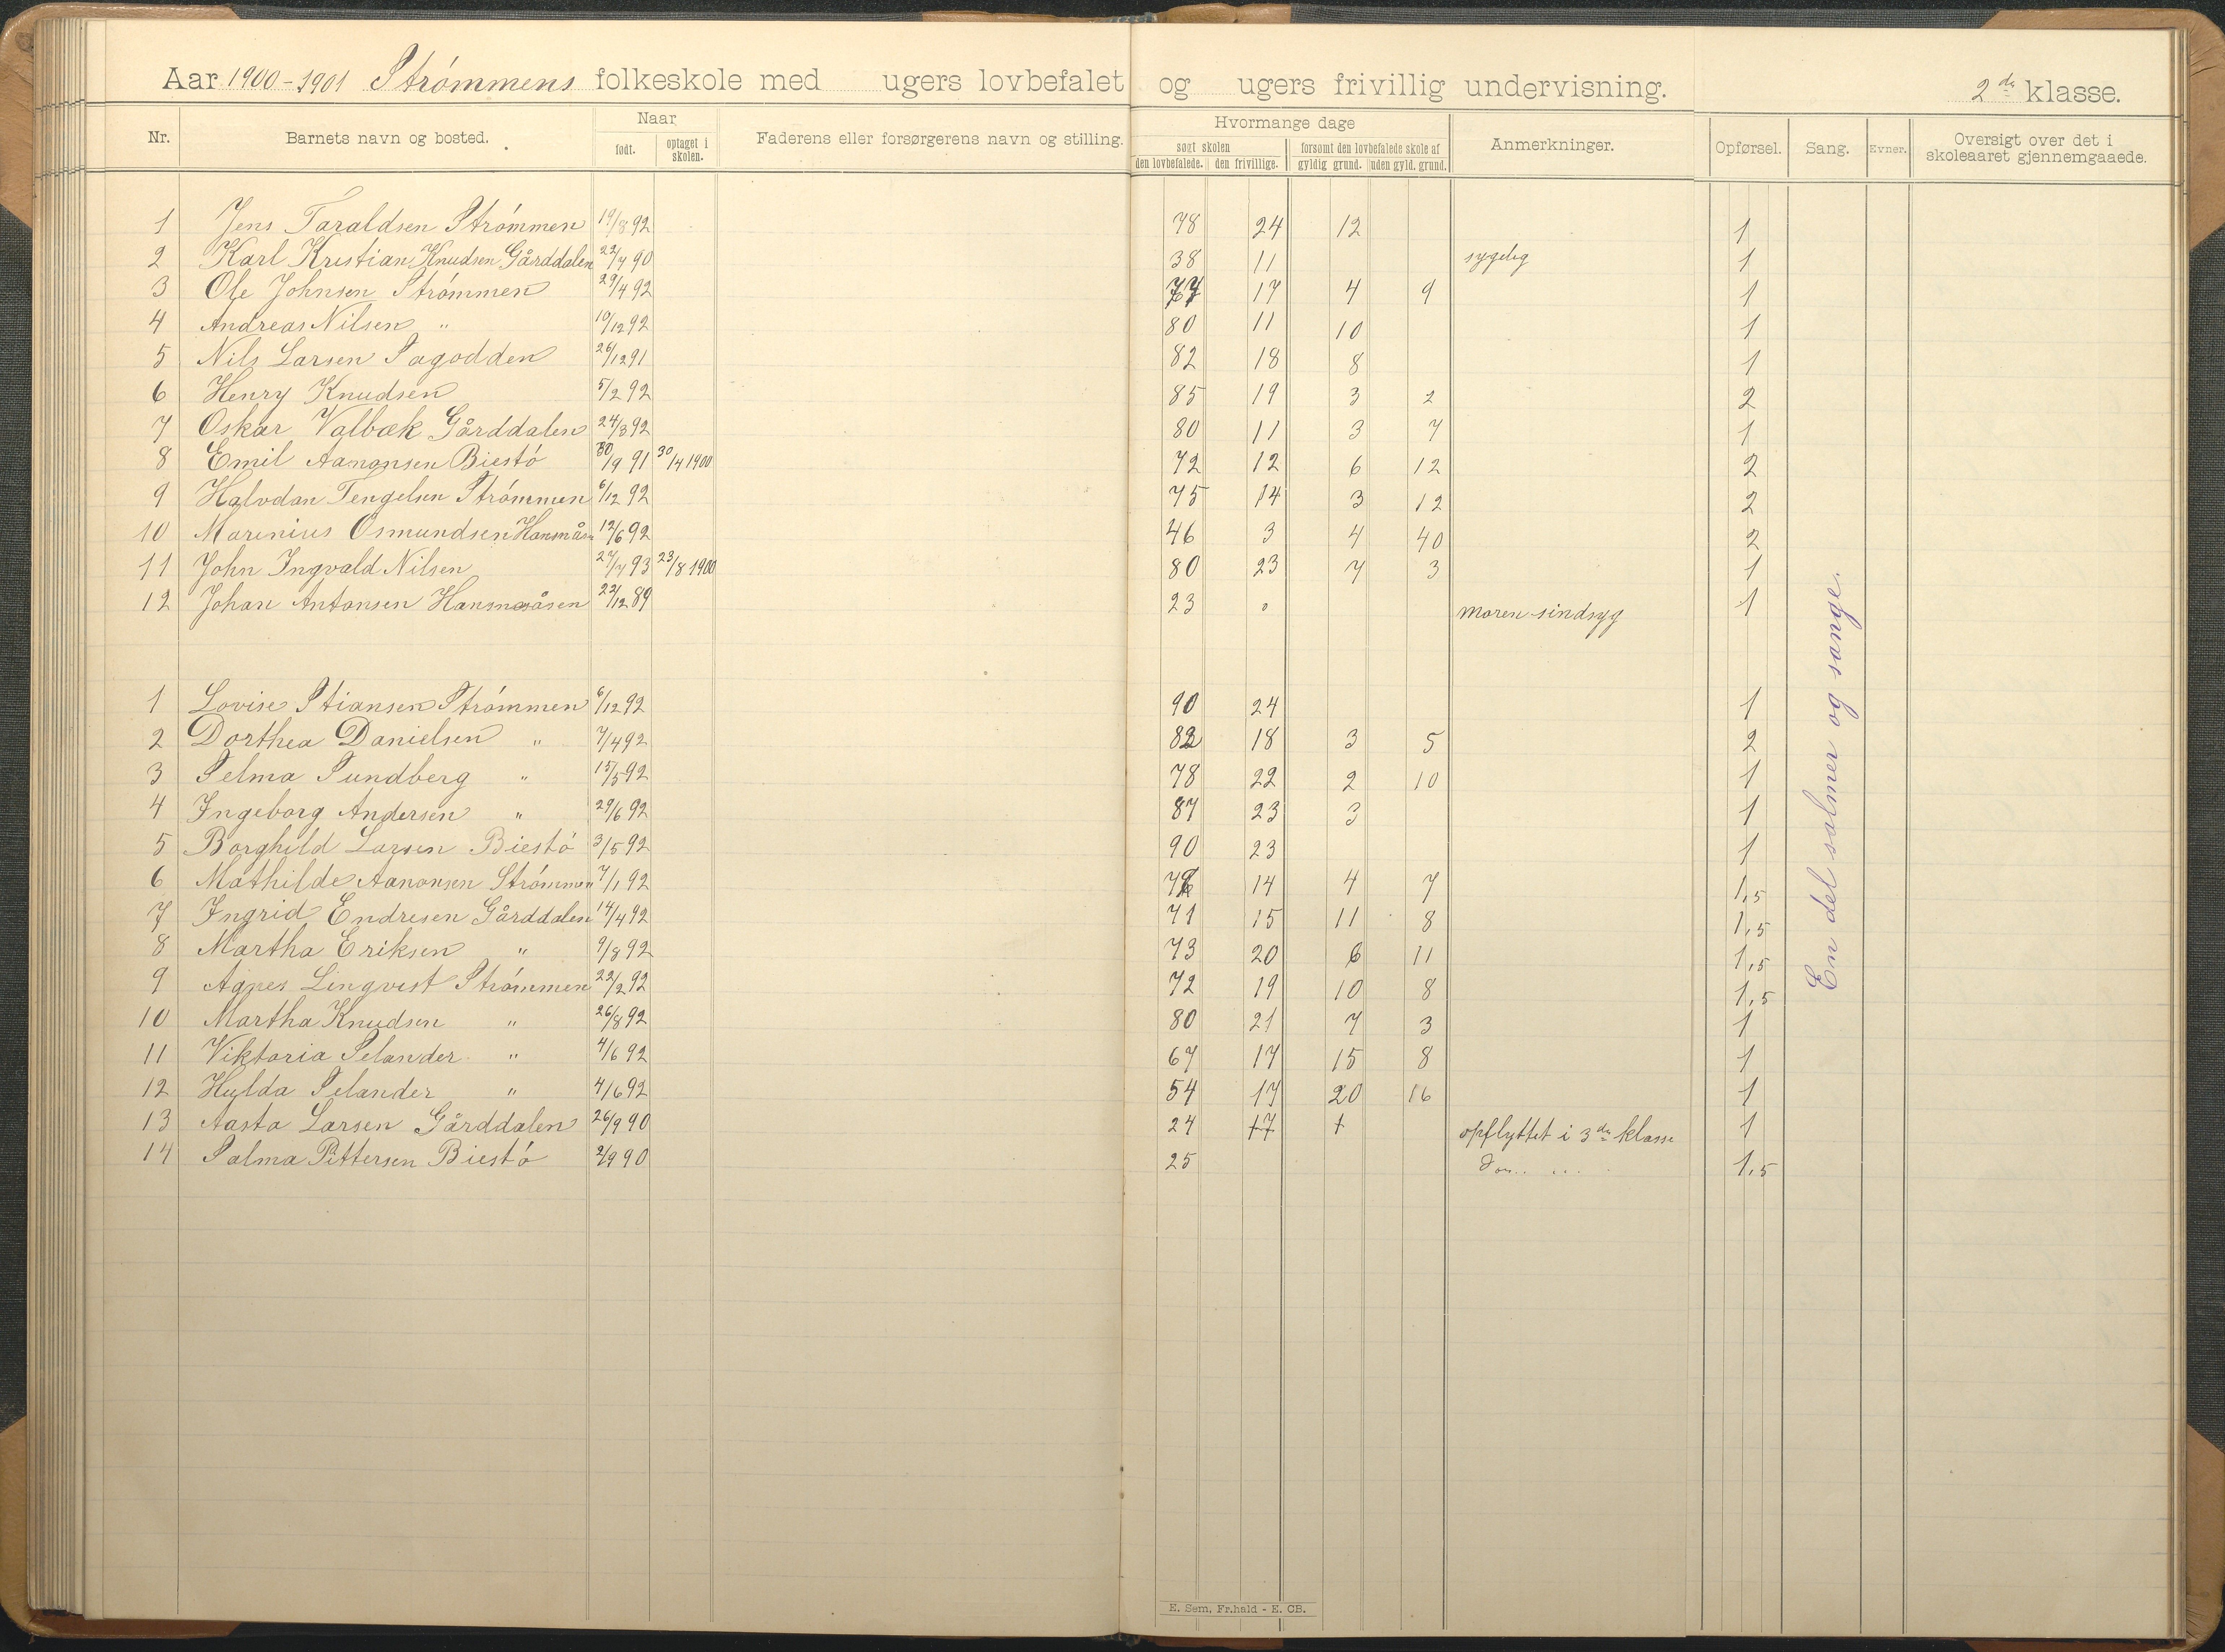 Aar 1900-1901 Strømmens folkeskole med ugers lovbefalet og ugers frivillig undervisning. 2de klasse.
Nr. Barnets navn og bosted. Naar født. optaget i skolen. Faderens eller forsørgerens navn og stilling. Hvormange dage søgt skolen den lovbefalede. den frivillige. forsømt den lovbefalede skole af gyldig grund. uden gyld. grund. Anmerkninger. Opførsel. Sang. Evner. Oversigt over det i skoleaaret gjennemgaaede.
1 Jens Taraldsen Strømmen 19/8 92 78 24 12 1
2 Karl Kristian Knudsen Gårddalen 22/7 90 38 11 sygelig 1
3 Ole Johnsen Strømmen 29/4 92 77 17 4 9 1
4 Andreas Nilsen " 10/12 92 80 11 10 1
5 Nils Larsen Sagodden 26/12 91 82 18 8 1
6 Henry Knudsen 5/2 92 85 19 3 2 2
7 Oskar Valbæk Gårddalen 24/3 92 80 11 3 7 1
8 Emil Aanonsen Biestø 30/9 91 30/4 1900 72 12 6 12 2
9 Halvdan Tengelsen Strømmen 6/12 92 75 14 3 12 2
10 Marenius Osmundsen Hansmås 12/6 92 46 3 4 40 2
11 John Ingvald Nilsen 27/7 93 23/8 1900 80 23 7 3 1
12 Johan Antonsen Hansmåsen 22/12 89 23 0 moren sindsyg 1
1 Lovise Stiansen Strømmen 6/12 92 90 24 1
2 Dorthea Danielsen " 7/4 92 82 18 3 5 2
3 Selma Sundberg " 15/5 92 78 22 2 10 1
4 Ingeborg Andersen " 29/6 92 87 23 3 1
5 Borghild Larsen Biestø 3/5 92 90 23 1
6 Mathilde Aanonsen Strømmen 7/1 92 14 4 7 1,5
7 Ingrid Endresen Gårddalen 14/4 92 71 15 11 8 1,5
8 Martha Eriksen " 9/8 92 73 20 6 11 1,5
9 Agnes Lingvist Strømmen 22/2 92 72 19 10 8 1,5
10 Martha Knudsen " 26/8 92 80 21 7 3 1
11 Viktoria Selander " 4/6 92 67 17 15 8 1
12 Hulda Selander " 4/6 92 54 17 20 16 1
13 Aasta Larsen Gårddalen 26/9 90 24 17 1 opflyttet i 3de klasse 1
14 Salma Pittersen Biestø 2/9 90 25 1,5
En del salmer og sange.
E. Sem, Fr.hald - E. CB.